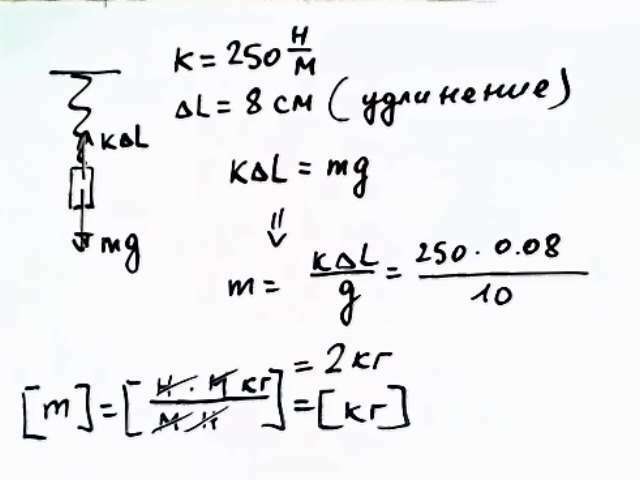 K = 250 Н/М
ΔL = 8 см (удлинение)
KΔL
KΔL = mg
⇓
mg
m = KΔL/g = 250 · 0.08/10
= 2 кг
[m] = [Н · М кг/М Н] = [кг]